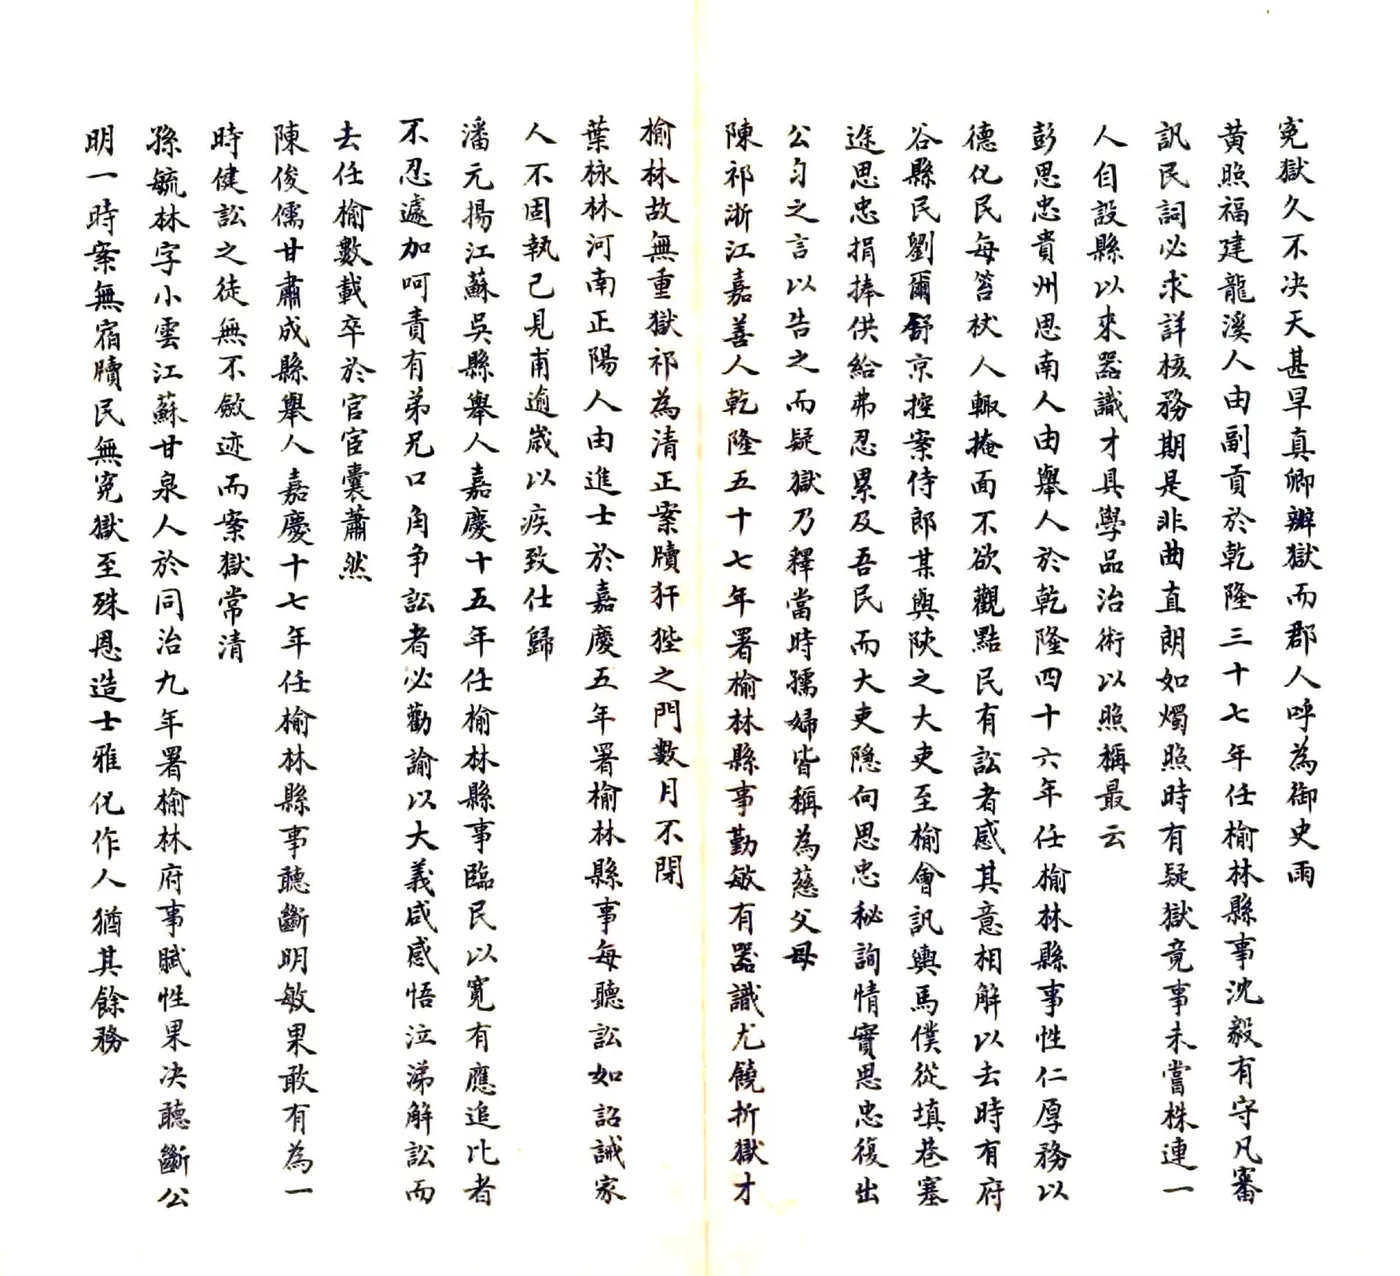 冤獄久不決天甚旱真卿辦獄而郡人呼為御史雨
黃照福建龍溪人由副貢於乾隆三十七年任榆林縣事沈毅有守凡審
訊民詞必求詳核務期是非曲直朗如燭照時有疑獄竟事未嘗株連一
人自設縣以來器識才具學品治術以照稱最云
彭思忠貴州思南人由舉人於乾隆四十六年任榆林縣事性仁厚務以
德化民每笞杖人輙掩面不欲觀點民有訟者感其意相解以去時有府
谷縣民劉爾舒京控案侍郎某與陝之大吏至榆會訊輿馬僕從填巷塞
途思忠捐捧供給弗忍累及吾民而大吏隱向思忠秘詢情實思忠復出
公匀之言以告之而疑獄乃釋當時孺婦皆稱為慈父母
陳祁浙江嘉善人乾隆五十七年署榆林縣事勤敏有器識尤饒折獄才
榆林故無重獄祁為清正案牘犴狴之門數月不閉
葉栐林河南正陽人由進士於嘉慶五年署榆林縣事每聽訟如詔誡家
人不固執己見甫逾歲以疾致仕歸
潘元揚江蘇吳縣舉人嘉慶十五年任榆林縣事臨民以寬有應追比者
不忍遽加呵責有弟兄口角争訟者必勸諭以大義咸感悟泣涕解訟而
去任榆數載卒於官宦囊蕭然
陳俊儒甘肅成縣舉人嘉慶十七年任榆林縣事聽斷明敏果敢有為一
時健訟之徒無不斂迹而案獄常清
孫毓林字小雲江蘇甘泉人於同治九年署榆林府事賦性果決聽斷公
明一時案無宿牘民無冤獄至殊恩造士雅化作人猶其餘務